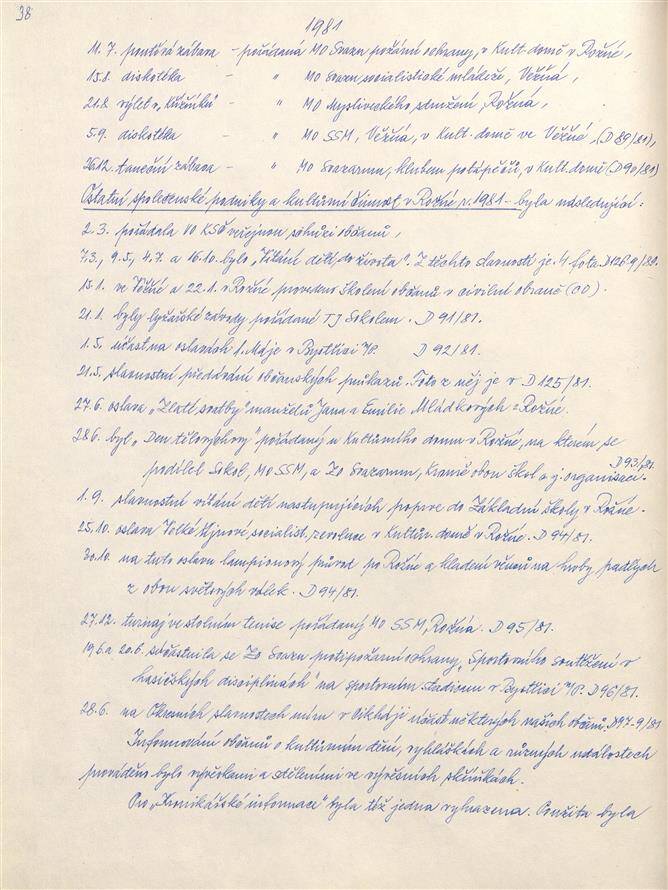 38
1981
11.7. pouťová zábava - pořádaná MO Svazu požární ochrany, v Kult. domě v Rožné,
15.8. diskotéka - " MO Svazu socialistické mládeže, Věžná,
21.8. výlet v " MO Mysliveckého sdružení, Rožná,
5.9. diskotéka - " MO SSM, Věžná, v Kult. domě ve Věžné, (D 89/81),
26.12. taneční zábava - " MO Svazarmu, klubem potápěčů, v Kult. domě (D 90/81)
Ostatní společenské podniky a kulturní činnost v Rožné r. 1981 - byla následující:
2.3. pořádala VO KSČ veřejnou schůzi občanů,
7.3., 9.5., 4.7. a 16.10. bylo „Vítání dětí do života". Z těchto slavností je 4. fota D 126-9/81.
15.1. ve Věžné a 22.1. v Rožné provedeno školení občanů v civilní obraně (CO).
21.1. byly lyžařské závody pořádané TJ Sokolem. D 91/81.
1.5. účast na oslavách 1. Máje v Bystřici n/P. D 92/81.
21.5. slavnostní předávání občanských průkazů. Foto z něj je v D 125/81.
27.6. oslava „Zlaté svatby" manželů Jana a Emilie Mládkových z Rožné.
28.6. byl „Den tělovýchovy" pořádaný u Kulturního domu v Rožné, na kterém se
podílel Sokol, MO SSM, a Zo Svazarmu, obou škol a j. organisací. D 93/81.
1.9. slavnostní vítání dětí nastupujících poprve do Základní školy v Rožné.
25.10. oslava Velké Říjnové socialist. revoluce v Kultur. domě v Rožné. D 94/81.
30.10. na tuto oslavu lampionový průvod po Rožné a kladení věnců na hroby padlých
z obou světových válek. D 94/81.
27.12. turnaj ve stolním tenise pořádaný MO SSM, Rožná. D 95/81.
19.6. a 20.6. súčastnila se Zo Svazu protipožární ochrany, „Sportovního soutěžení v
hasičských disciplinách" na sportovním stadionu v Bystřici n/P. D 96/81.
28.6. na Okresních slavnostech míru v účast některých našich občanů. D 97-9/81
Informování občanů o kulturním dění, vyhláškách a různých událostech
prováděno bylo vývěskami a sděleními ve vývěsních skříňkách.
Pro „Kronikářské informace" byla též jedna vyhrazena. Použita byla